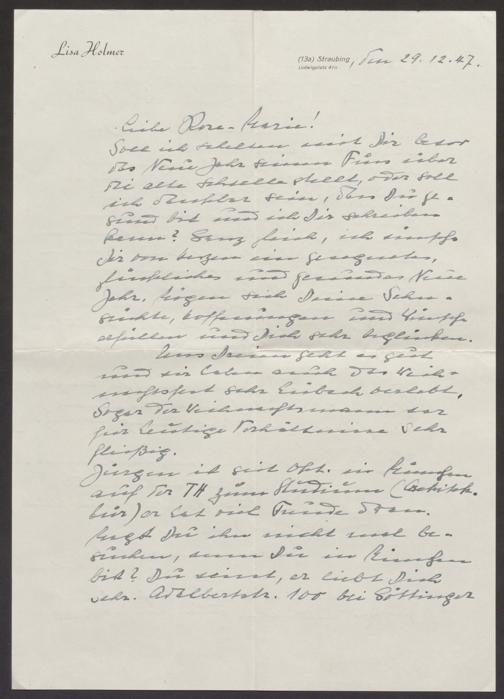 Lisa Holmer
(13a) Straubing, den 29.12.47.
Ludwigsplatz
Liebe Rose-Marie!
Soll ich schelten mit Dir bevor
das Neue Jahr seinen Fuss über
die alte Schwelle stellt, oder soll
ich dankbar sein, dass Du ge-
sund bist und ich Dir schreiben
kann? Ganz gleich, ich wünsche
Dir von Herzen ein gesegnetes,
glückliches und gesundes Neue
Jahr. Mögen sich Deine Sehn-
süchte, Hoffnungen und Wünsche
erfüllen und Dich sehr beglücken.
Uns Dreien geht es gut
und wir haben auch das Weih-
nachtsfest sehr hübsch verlebt.
Sogar der Weihnachtsmann war
für heutige Verhältnisse sehr
fleißig.
Jürgen ist seit Okt. in München
auf der TH zum Studium (Architek-
tur) er hat viel Freude dran.
Magst Du ihn nicht mal be-
suchen, wenn Du in München
bist? Du weisst, er liebt Dich
sehr. Adalbertstr. 100 bei Göttinger